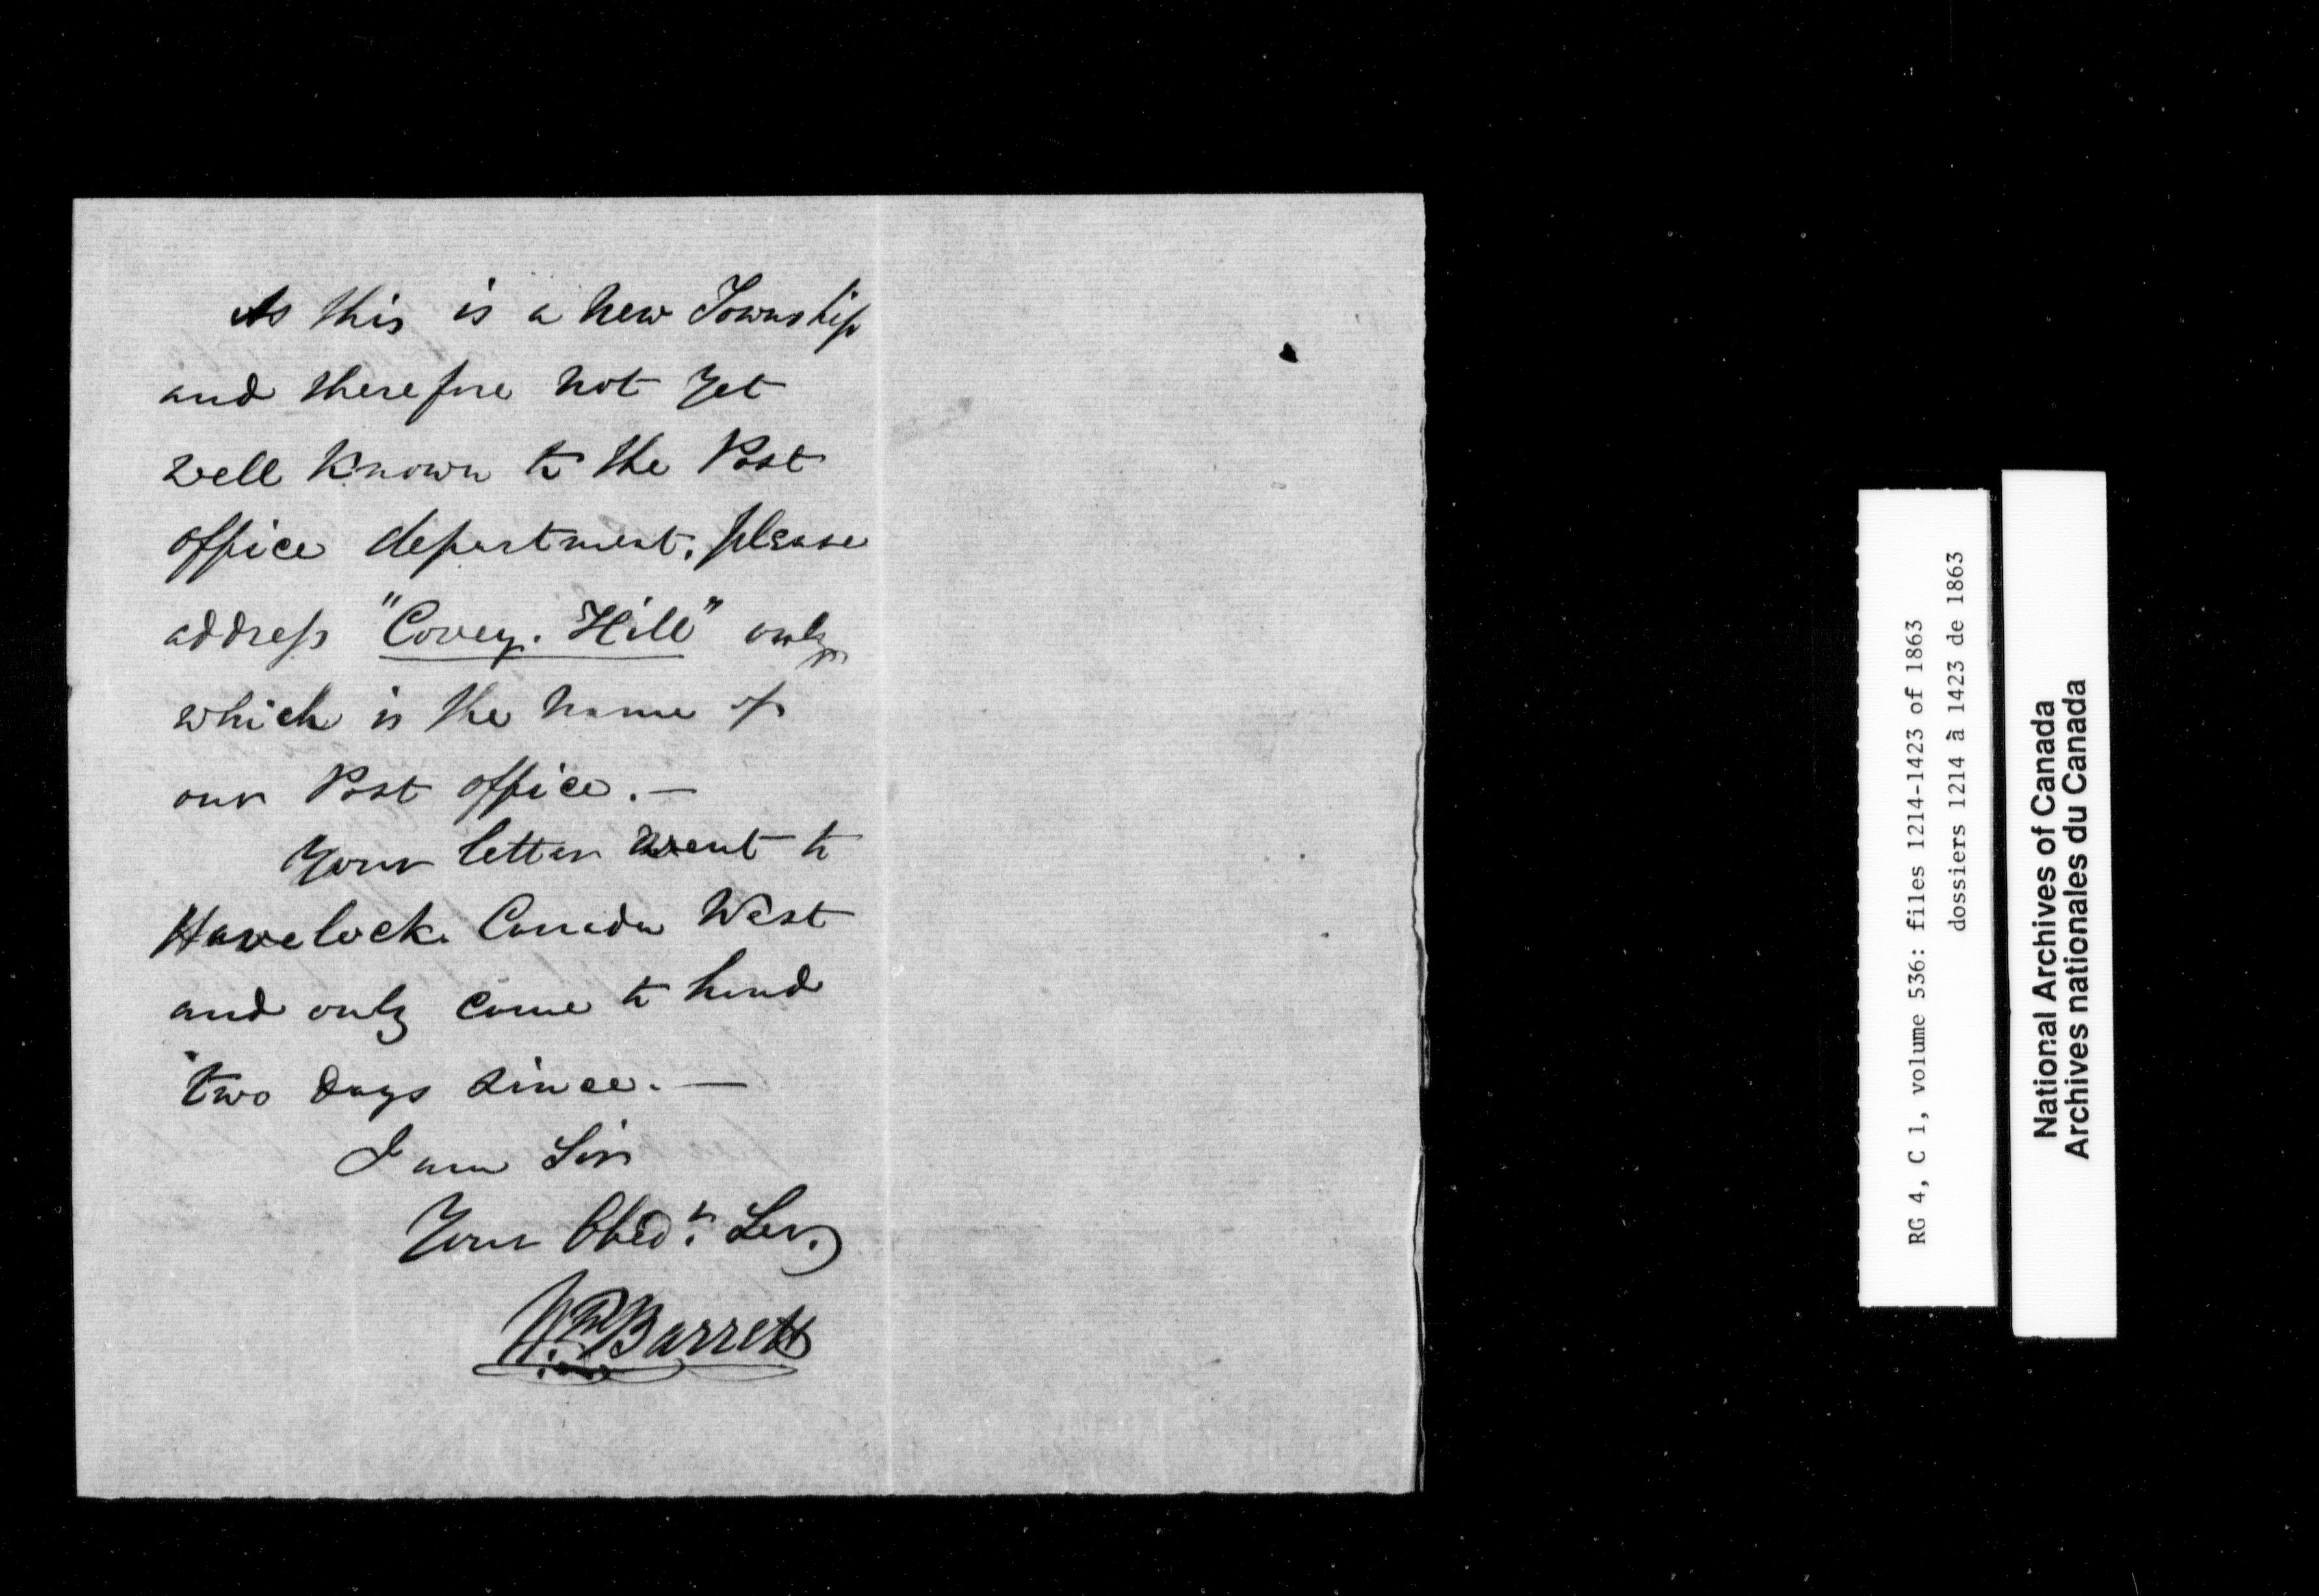 As this is a new Township
and therefore not yet
well known to the Post
office department, please
address "Covey. Hill" only
which is the name of
our Post office. —
Your letter went to
Havelock Canada West
and only came to hand
two days since. —
I am Sir
Your Obed.t Ser.
Barrett
RG 4, C 1, volume 536: files 1214-1423 of 1863
dossiers 1214 à 1423 de 1863
National Archives of Canada
Archives nationales du Canada